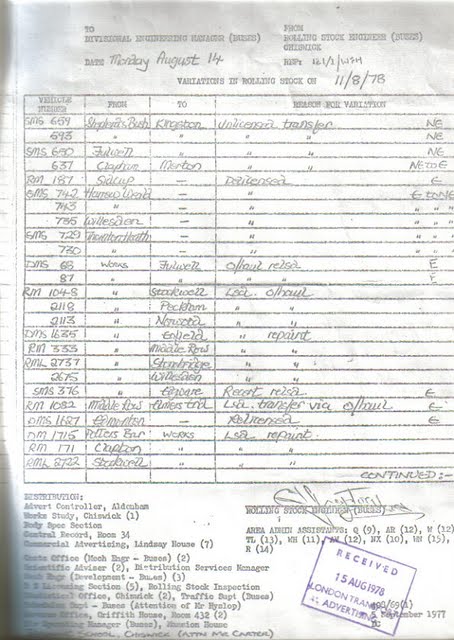 TO
DIVISIONAL ENGINEERING MANAGER (BUSES)
FROM
ROLLING STOCK ENGINEER (BUSES)
CHISWICK
DATE Monday August 14
REF:
VARIATIONS IN ROLLING STOCK ON 11/8/78
VEHICLE NUMBER FROM TO REASON FOR VARIATION
SMS 659 Shepherds Bush Kingston Unlicensed transfer NE
693 " " " " NE
SMS 690 Fulwell " " " NE
637 Clapham Merton " "
RM 187 Sidcup — Delicensed E
SMS 742 —
743 " — " " " "
735 Willesden — " " " "
SMS 729 Thornton Heath — " " " "
730 " — " " " "
DMS 68 Works Fulwell E
87 " " " " E
RM 1048 " Stockwell o/haul
2118 " Peckham " "
2113 " Norwood " "
DMS 1635 " Enfield " repaint
RM 333 " Middle Row " "
RML 2737 " Stonebridge " "
2675 " Willesden " "
SMS 376 " Edgware E
RM 1082 Middle Row transfer via o/haul E
DMS 1627 Edmonton — Relicensed E
DM 1715 Potters Bar Works repaint
RM 171 Clapton " " "
RML 2722 Stockwell " " "
CONTINUED:-
DISTRIBUTION:
Advert Controller, Aldenham
Works Study, Chiswick (1)
Body Spec Section
Central Record, Room 34
Commercial Advertising, Lindsay House (7)
Costs Office (Mech Engr - Buses) (2)
Scientific Adviser (2), Distribution Services Manager
Mech Engr (Development - Buses) (3)
Licensing Section (5), Rolling Stock Inspection
Office, Chiswick (2), Traffic Supt (Buses)
Supt - Buses (Attention of Mr Hyslop)
Office, Griffith House, Room 432 (2)
Operating Manager (Buses), Mansion House
SCHOOL, CHISWICK (ATTN MR CARTER)
ROLLING STOCK ENGINEER (BUSES)
AREA ADMIN ASSISTANTS: Q (9), AR (12), W (12)
TL (13), WH (11), AV (12), NX (10), HW (15),
R (14)
RECEIVED
15 AUG 1978
LONDON TRANSPORT
ADVERTISING
September 1977